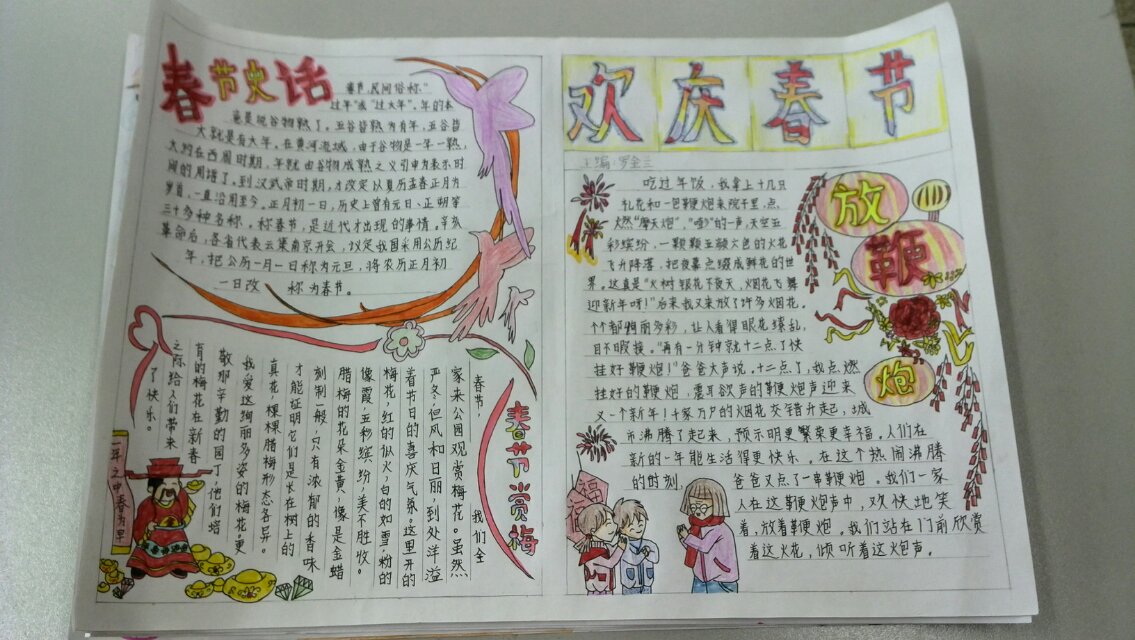 春节史话
春节,民间俗称"
过年"或"过大年"。年的本
意是说谷物熟了。五谷皆熟为有年,五谷皆
大熟是有大年。在黄河流域,由于谷物是一年一熟,
大约在西周时期,年就由谷物成熟之义引申为表示时
间的周错了。到汉武帝时期,才改定以夏历孟春正月为
岁首,一直沿用至今。正月初一日,历史上曾有元日、正朔等
三十多种名称。称春节,是近代才出现的事情。辛亥
革命后,各省代表云集南京开会,议定我国采用公历纪
年,把公历一月一日称为元旦,将农历正月初
一日改 称为春节。
春节赏梅
春节, 我们全
家来公园观赏梅花。虽然
严冬但风和日丽,到处洋溢
着节日的喜庆气氛。这里开的
梅花,红的似火,白的如雪,粉的
像霞,五彩缤纷,美不胜收。
腊梅的花朵金黄,像是金蜡
刻制一般,只有浓郁的香味
才能证明它们是长在树上的
真花,棵棵腊梅形态各异。
我爱这绚丽多姿的梅花。更
敬那辛勤的园丁,他们培
育的梅花在新春
之际给人们带来
了快乐。
一年之中春为早
欢庆春节
主编:罗金兰
放鞭炮
吃过年饭,我拿上十几只
礼花和一包鞭炮来院子里,点
火然"摩天炮","咚"的一声,天空五
彩缤纷,一颗颗五颜六色的火花
飞升降落,把夜幕点缀成鲜花的世
界。这真是"火树银花不夜天,烟花飞舞
迎新年呀!"后来我又来放了许多烟花。
个个都绚丽多彩,让人看得眼花缭乱,
目不暇接。"再有一分钟就十二点了快
挂好鞭炮!"爸爸大声说。十二点了,我点燃
挂好的鞭炮,震耳欲声的鞭炮声迎来
又一个新年!千家万户的烟花交错升起,城
市沸腾了起来,预示明更繁荣更幸福。人们在
新的一年能生活得更快乐。在这个热闹沸腾
的时刻,爸爸又点了一串鞭炮。我们一家
人在这鞭炮声中,欢快地笑
着,放着鞭炮。我们站在门前欣赏
着这火花,倾听着这炮声。
福